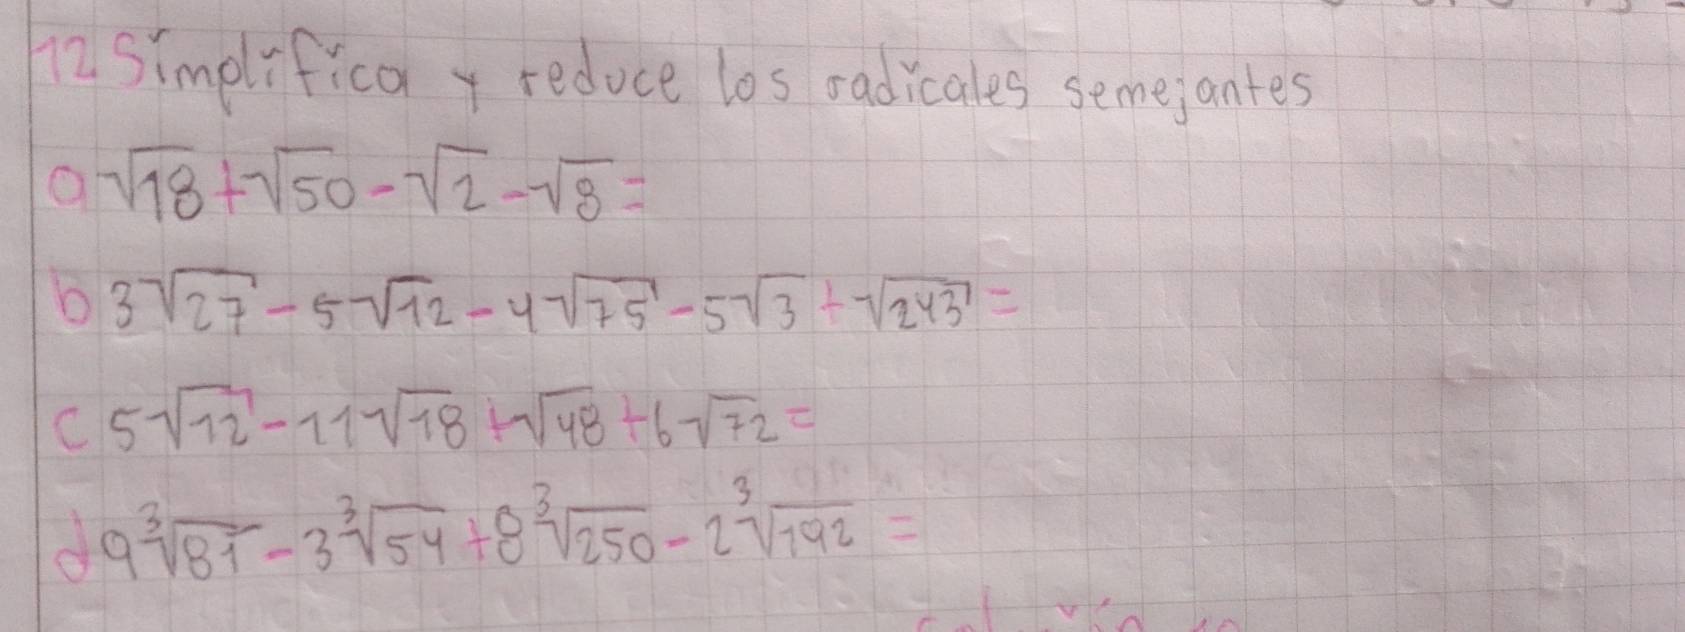 12 Simplifica y reduce los radicales semejantes
a √18 + √50 - √2 - √8 =
b 3√27 - 5√12 - 4√75 - 5√3 + √243 =
c 5√12 - 11√18 + √48 + 6√72 =
d 9∛81 - 3∛54 + 8∛250 - 2∛192 =